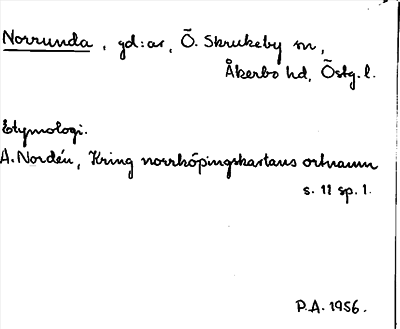 Norrunda, gd:ar, Ö. Skrukeby sn,
Åkerbo hd, Östg. l.
Etymologi.
A. Nordén, Kring norrköpingskartans ortnamn
s. 11 sp. 1.
P.A. 1956.